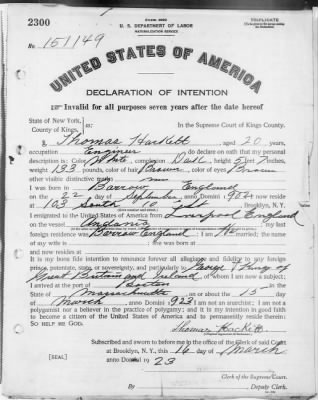 2300
U. S. DEPARTMENT OF LABOR
NATURALIZATION SERVICE
TRIPLICATE
No. 151149
UNITED STATES OF AMERICA
DECLARATION OF INTENTION
Invalid for all purposes seven years after the date hereof
State of New York,
County of Kings, ss:
In the Supreme Court of Kings County.
I, Thomas Hackett, aged 20 years,
occupation Engineer, do declare on oath that my personal
description is: Color White, complexion Dark, height 5 feet 7 inches,
weight 133 pounds, color of hair Brown, color of eyes Brown
other visible distinctive marks none
I was born in Barrow England
on the day of September, anno Domini 1902; I now reside
at 103 South 10 St Brooklyn, N. Y.
I emigrated to the United States of America from Liverpool England
on the vessel; my last
foreign residence was Barrow England; I am married; the name
of my wife is; she was born at
and now resides at
It is my bona fide intention to renounce forever all allegiance and fidelity to any foreign
prince, potentate, state, or sovereignty, and particularly to George V King of
Great Britain and Ireland, of whom I am now a subject;
I arrived at the port of Boston, in the
State of Massachusetts, on or about the 15 day
of March, anno Domini 1923; I am not an anarchist; I am not a
polygamist nor a believer in the practice of polygamy; and it is my intention in good faith
to become a citizen of the United States of America and to permanently reside therein:
SO HELP ME GOD.
Thomas Hackett
Subscribed and sworn to before me in the office of the Clerk of said Court
at Brooklyn, N. Y., this 16 day of March
[SEAL] anno Domini 1923
Clerk of the Supreme Court.
By, Deputy Clerk.